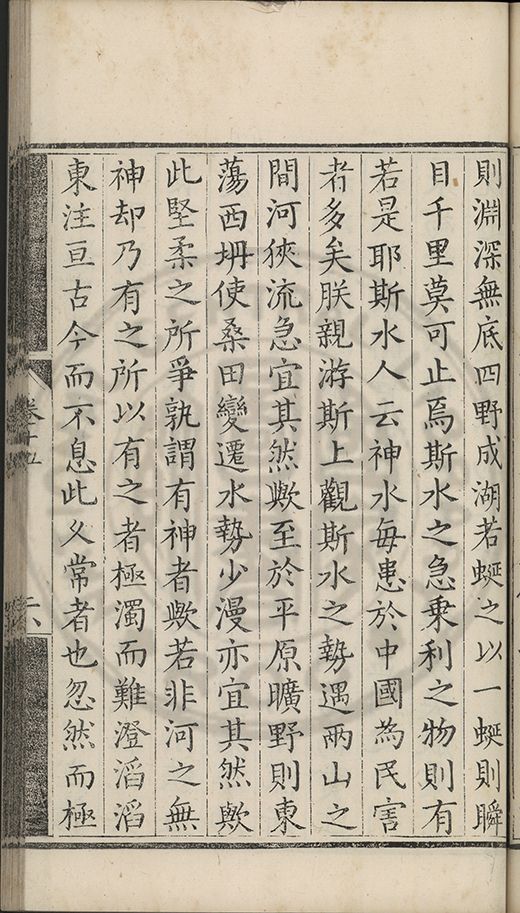 則淵深無底四野成湖若蜒之以一蜒則瞬
目千里莫可止焉斯水之急乗利之物則有
若是耶斯水人云神水每患於中國為民害
者多矣朕親游斯上觀斯水之勢遇兩山之
間河狹流急宜其然歟至於平原曠野則東
蕩西坍使桑田變遷水勢少漫亦宜其然歟
此堅柔之所爭孰謂有神者歟若非河之無
神却乃有之所以有之者極濁而難澄滔滔
東注亘古今而不息此乆常者也忽然而極
卷十五